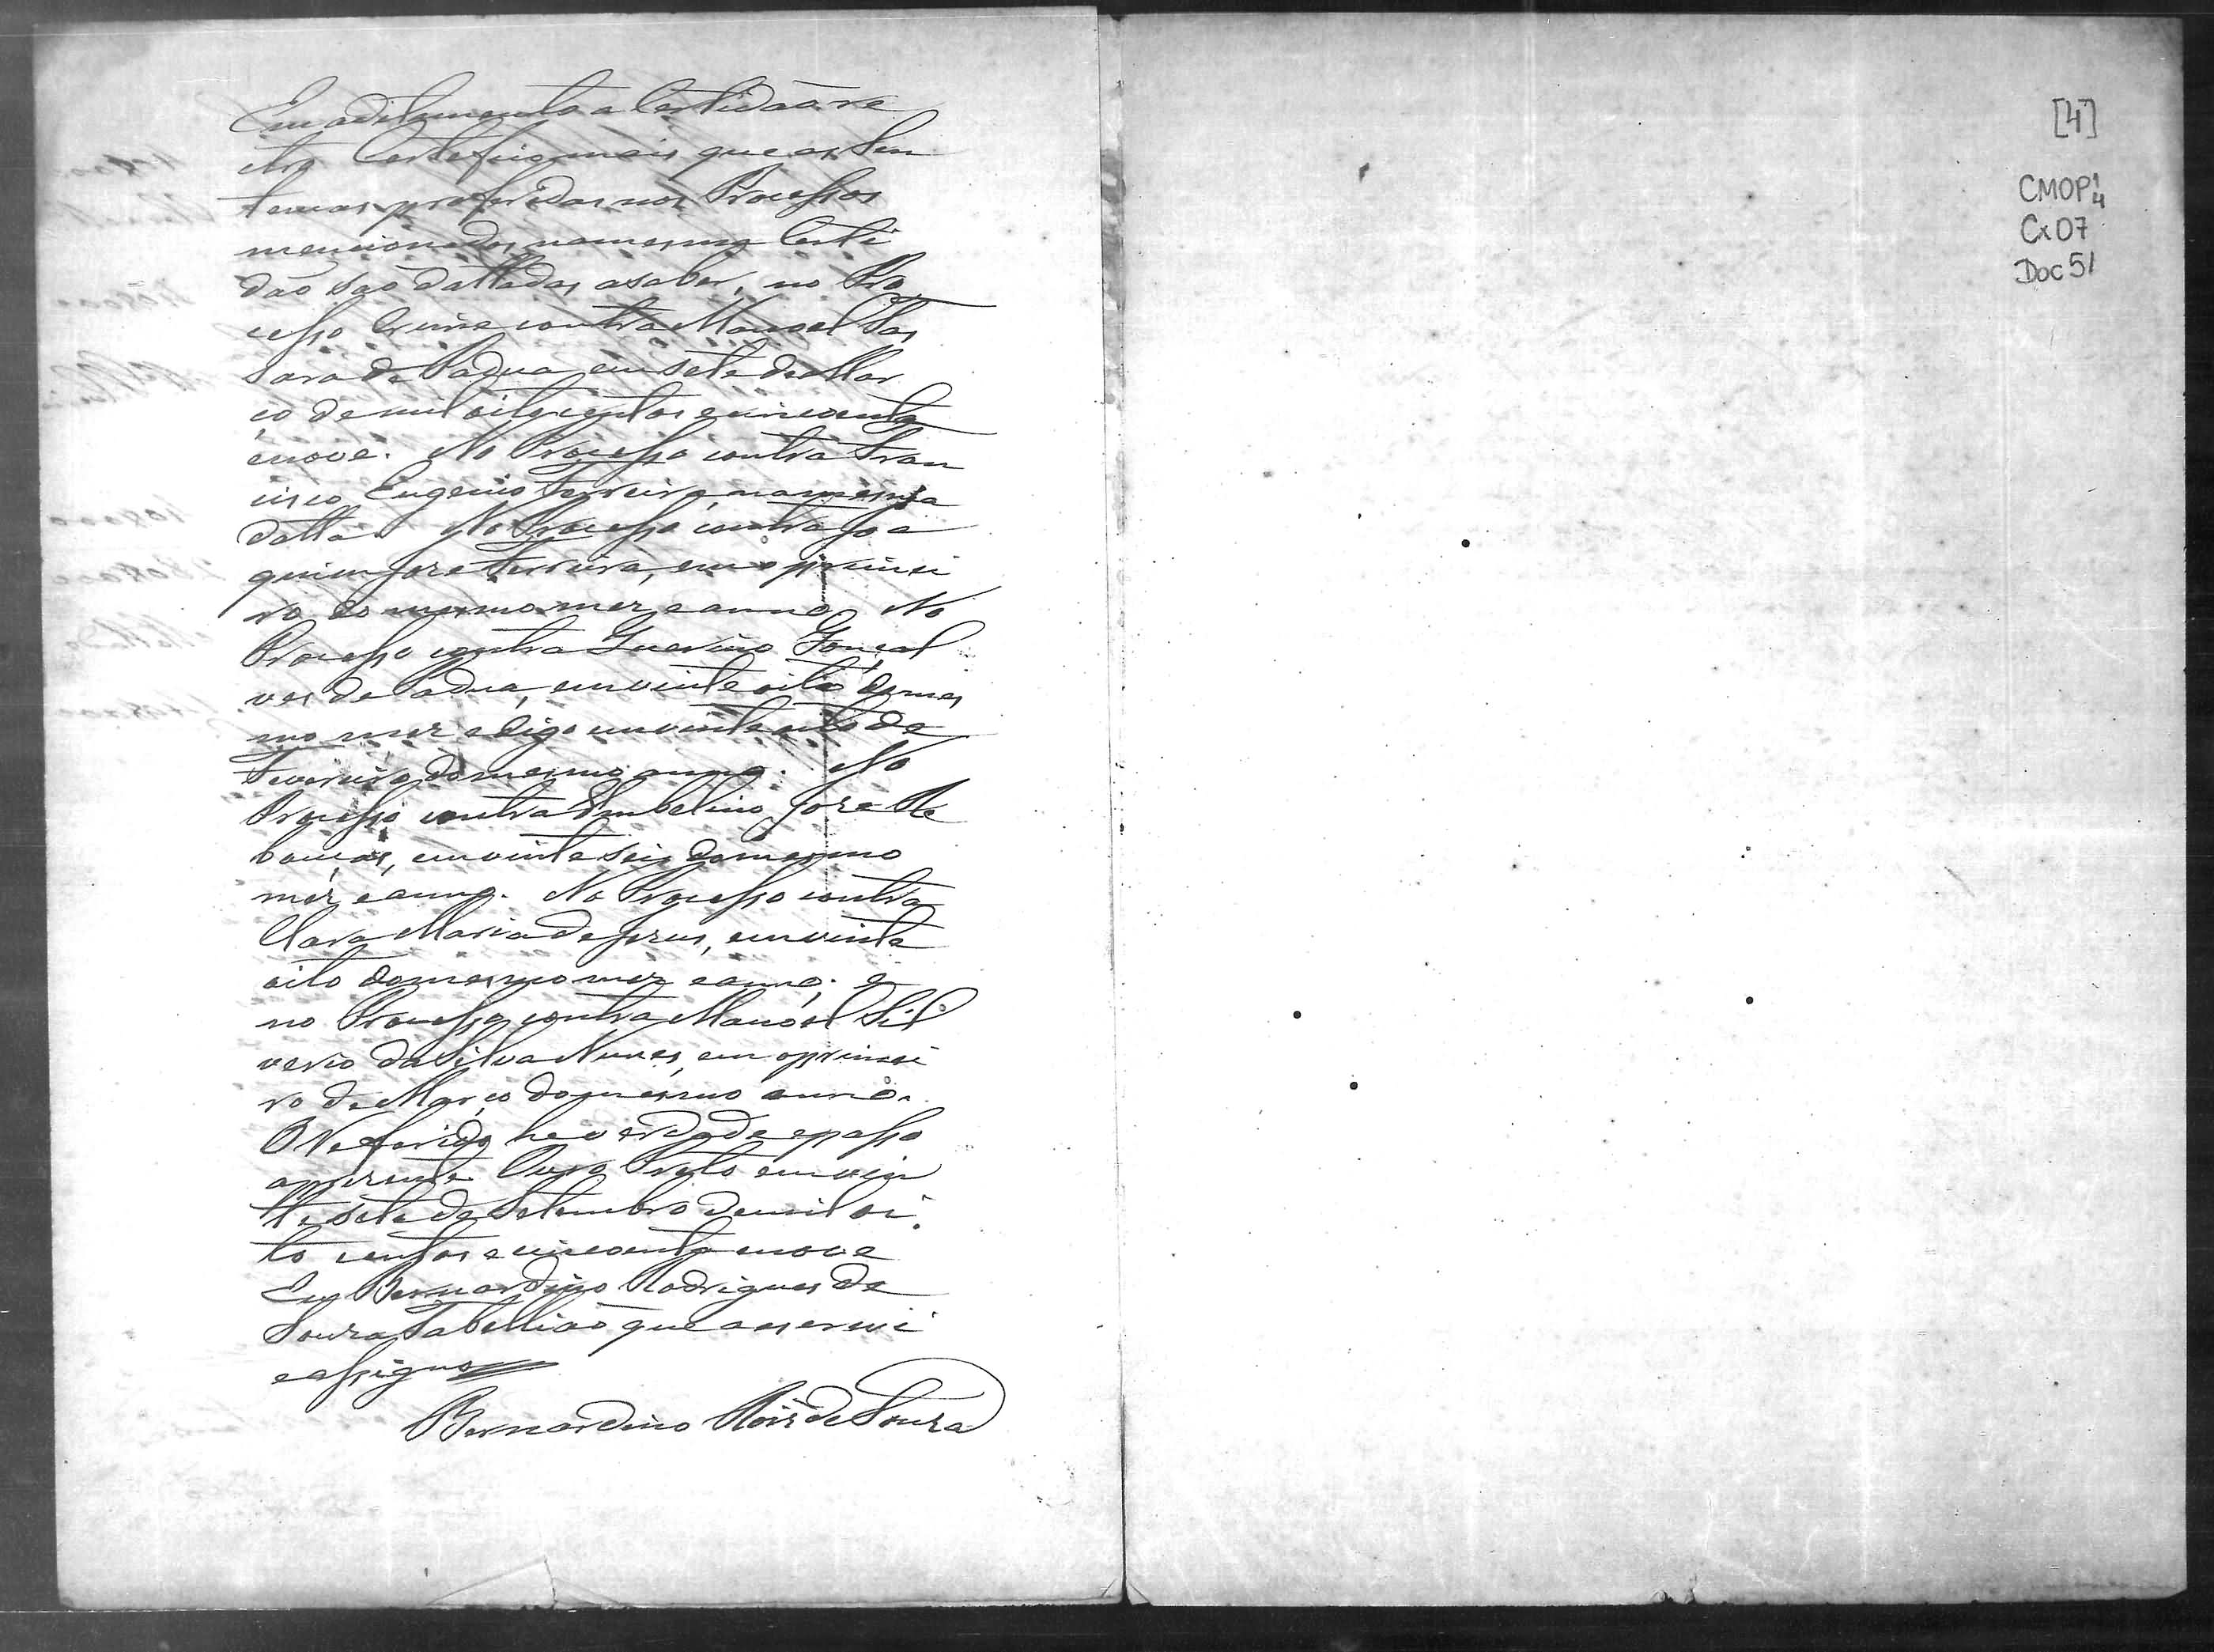 Em aditamento a Certidão re
tro Certefico mais que as Sen
tenças proferidas nos Processos
mencionados na mesma Certi
dão são dattadas, a saber, no Pro
cesso Crime contra Manoel
de Padua, em sete de Mar
ço de mil oitocentos e cincoenta
e nove. No Processo contra Fran
cisco Eugenio Ferreira, na mesma
datta. No Processo contra Joa
quim José Ferreira, em o primei
ro do mesmo mez e anno. No
Processo contra Guerino Gonçal
ves de Padua, em vinte oito do mes
mo mez e digo em vinte oito de
Fevereiro do mesmo anno. No
Processo contra Umbelino José Re
bouças, em vinte seis do mesmo
mez e anno. No Processo contra
Clara Maria de Jesus, em vinte
oito do mesmo mez e anno; e
no Processo contra Manoel Sil
verio da Silva Nunes, em o primei
ro de Março do mesmo anno.
O Referido he verdade e passo
a presente. Ouro Preto em vin
te sete de Setembro de mil oi
to centos e cincoenta e nove
Eu Bernardino Rodrigues de
Souza Tabellião que a escrevi
e assigno
Bernardino Roiz de Souza
[4]
CMOP 1/4
Cx 07
Doc 51